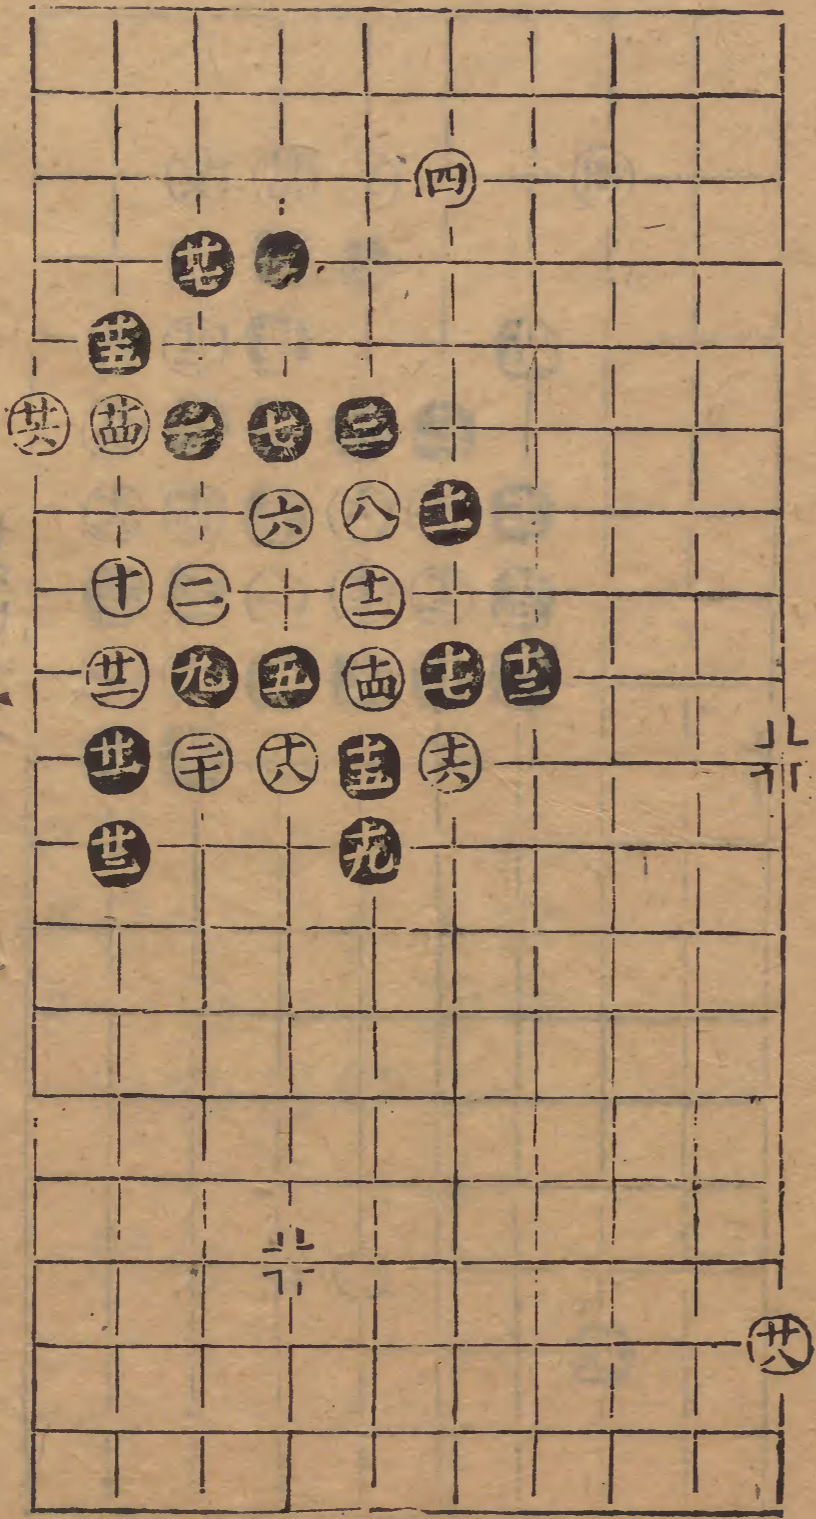 四
廿七
廿五
廿六 廿四 一 七 三
六 八 十一
十 二 十二
廿二 九 五 十四 十七 十三
廿一 二十 十八 十五 十六
廿三 十九
廿八